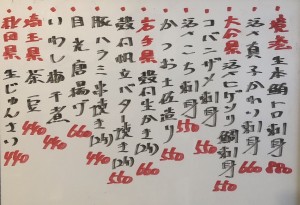 生本鮪トロ刺身 880
活〆真子かれい刺身 660
大分県 活〆ヒゲソリ鯛刺身 550
コバンザメ刺身 550
活〆こち刺身 550
かつお土佐造り 550
岩手県 殻付生かき 660
殻付帆立バター焼き 550
豚ハラミ串焼き 440
目光唐揚げ 660
いわし梅干煮 440
埼玉県 茶豆 440
秋田県 生じゅんさい 440